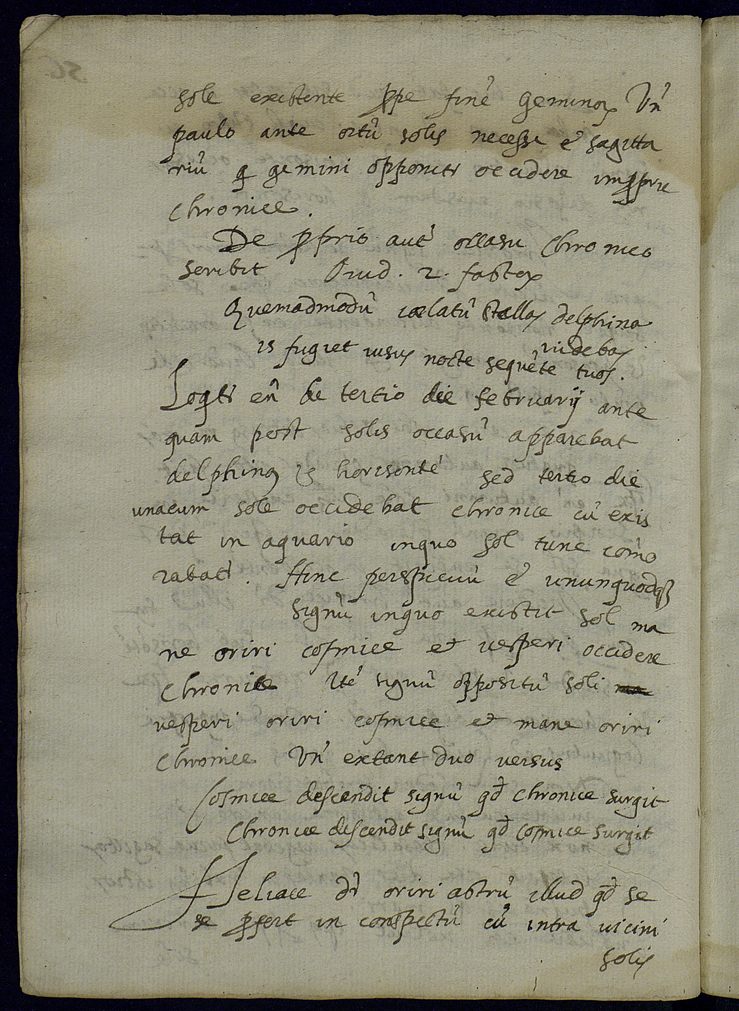 sole existente ꝓpe finẽ geminoꝝ Vñ
paulo ante ortũ solis necesse ẽ sagitta
riũ q gemini opponitr occidere impꝓprie
chronice.
De ꝓprio aut̃ occasu chronico
scribit Ovid. 2. fastoꝝ
Quemadmodũ cælatũ stellis delphina
videbas
is fugiet visus nocte sequẽte tuos.
Loqt̃r eñ de tertio die februarij ante
quam post solis occasũ apparebat
delphinꝰ is horisontẽ sed tertio die
unacum sole occidebat chronice cũ exis
tat in aquario inquo sol tunc com̃o
rabat̃. Hinc perspicuũ ẽ ununquodqꝫ
signũ inquo existit sol ma
ne oriri cosmice et vesperi occidere
chronice itẽ signũ oppositũ soli
vesperi oriri cosmice et mane oriri
chronice Vñ extant duo versus
Cosmice descendit signũ qd̃ chronice surgit
Chronice discendit signũ qd̃ cosmice surgit
Heliace dr̃ oriri astrũ illud qd̃ se
se ꝓfert in conspectũ cũ intra vicini
solis